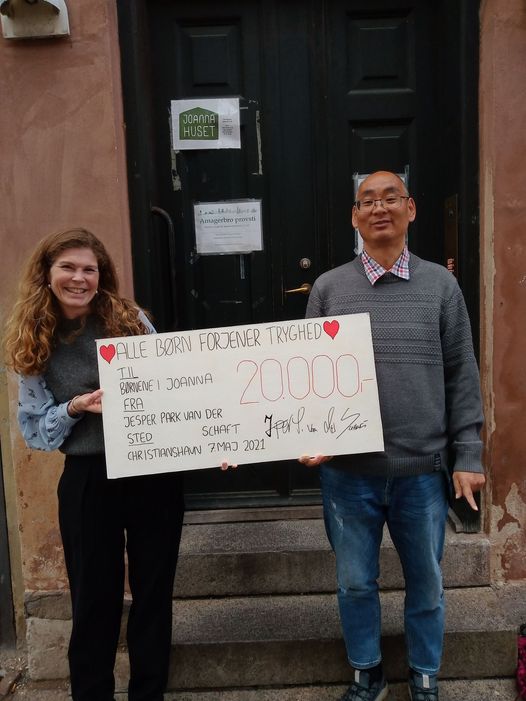 JOANNA
HUSET
Amagerbro provsti
ALLE BØRN FORJENER TRYGHED
TIL
BØRNENE I JOANNA
20.000,-
FRA
JESPER PARK VAN DER
SCHAFT
STED
CHRISTIANSHAVN 7 MAJ 2021